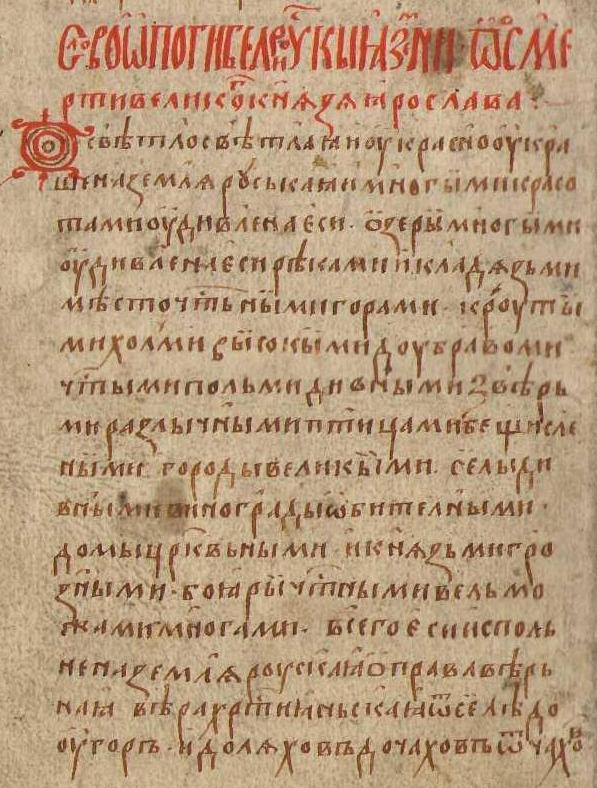 Сло́во ѡ погибели Рускыꙗ земли · ѿ сме
рти великоⷢ кнѧзѧ ꙗрослава :
Ѡ свѣтло свѣтлаꙗ и оукрасно оукра
шена землѧ руськаꙗ и многыми красо
тами оудивлена еси · ѡзеры многыми
оудивлена еси рѣками и кладѧзьми
мѣсточтⷭьными горами · кроуты
ми холми высокыми доубравоми
чтⷭыми польми дивными звѣрь
ми разлычными птицами бещисле
ными городы великыми · селы ди
вными винограды ѡбителными ·
домы црк҃вьными · и кнѧзьми гро
зными · боꙗры чтⷭными вельмо
жами многами · всего еси исполь
нена землѧ роускаꙗ ѡ прававѣрь
наꙗ вѣра хрⷭтиꙗньскаꙗ ѿселѣ до
оугоръ · и до лѧховъ до чаховъ ѿ чаховⷡ